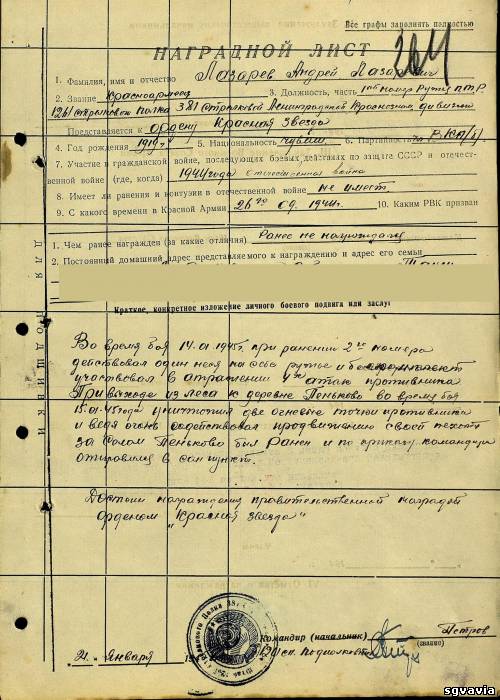 Все графы заполнять полностью
НАГРАДНОЙ ЛИСТ
1. Фамилия, имя и отчество Лазарев Андрей Лазаревич
2. Звание Красноармеец 3. Должность, часть 1ый номер Ружья ПТР
1261 стрелкового полка 381 стрелковой Ленинградской Краснознам. дивизии
Представляется к ордену Красная Звезда
4. Год рождения 1919г 5. Национальность 6. Партийность
7. Участие в гражданской войне, последующих боевых действиях по защите СССР и отечест-
венной войне (где, когда) 1944 года отечественная война
8. Имеет ли ранения и контузии в отечественной войне не имеет
9. С какого времени в Красной Армии 26го 09. 1944г. 10. Каким РВК призван
1. Чем ранее награжден (за какие отличия) Ранее не награждался
2. Постоянный домашний адрес представляемого к награждению и адрес его семьи
Краткое, конкретное изложение личного боевого подвига или заслуг
Во время боя 14.01.1945г. при ранении 2го номера
действовал один неся на себе ружье и
участвовал в отражении атак противника
При выходе из леса к деревне Пеньково во время боя
15.01.45 года уничтожил две огневые точки противника
и ведя огонь содействовал продвижению своей пехоты
за селом Пеньково был Ранен и по приказу командира
отправился в сан пункт.
Достоин награждения правительственной наградой
Орденом „Красная Звезда"
ДЛЯ ПОДШИВКИ
Командир (начальник)
(звание)
Петров
1261 сп. Подполковник
21 января
sgvavia